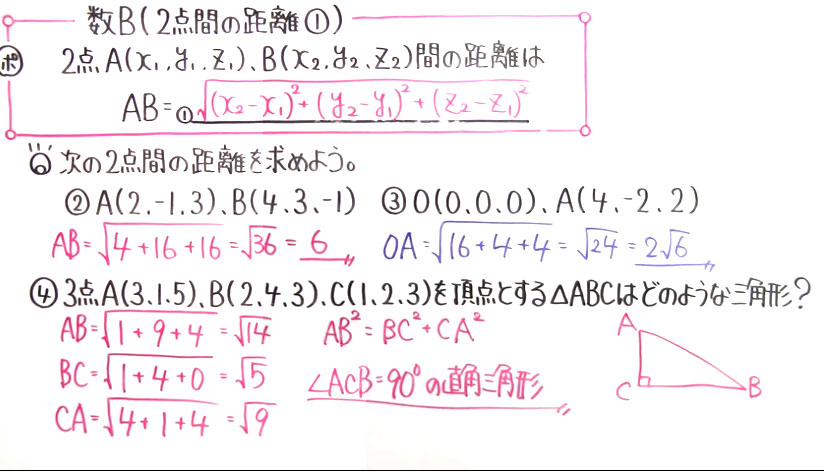 数B(2点間の距離①)
ポ 2点A(x₁,y₁,z₁)、B(x₂,y₂,z₂)間の距離は
AB=①√(x₂-x₁)²+(y₂-y₁)²+(z₂-z₁)²
次の2点間の距離を求めよう。
②A(2,-1,3)、B(4,3,-1) ③O(0,0,0)、A(4,-2,2)
AB=√4+16+16=√36=6 OA=√16+4+4=√24=2√6
④3点A(3,1,5)、B(2,4,3)、C(1,2,3)を頂点とする△ABCはどのような三角形?
AB=√1+9+4=√14 AB²=BC²+CA²
BC=√1+4+0=√5 ∠ACB=90°の直角三角形
CA=√4+1+4=√9
A
C B